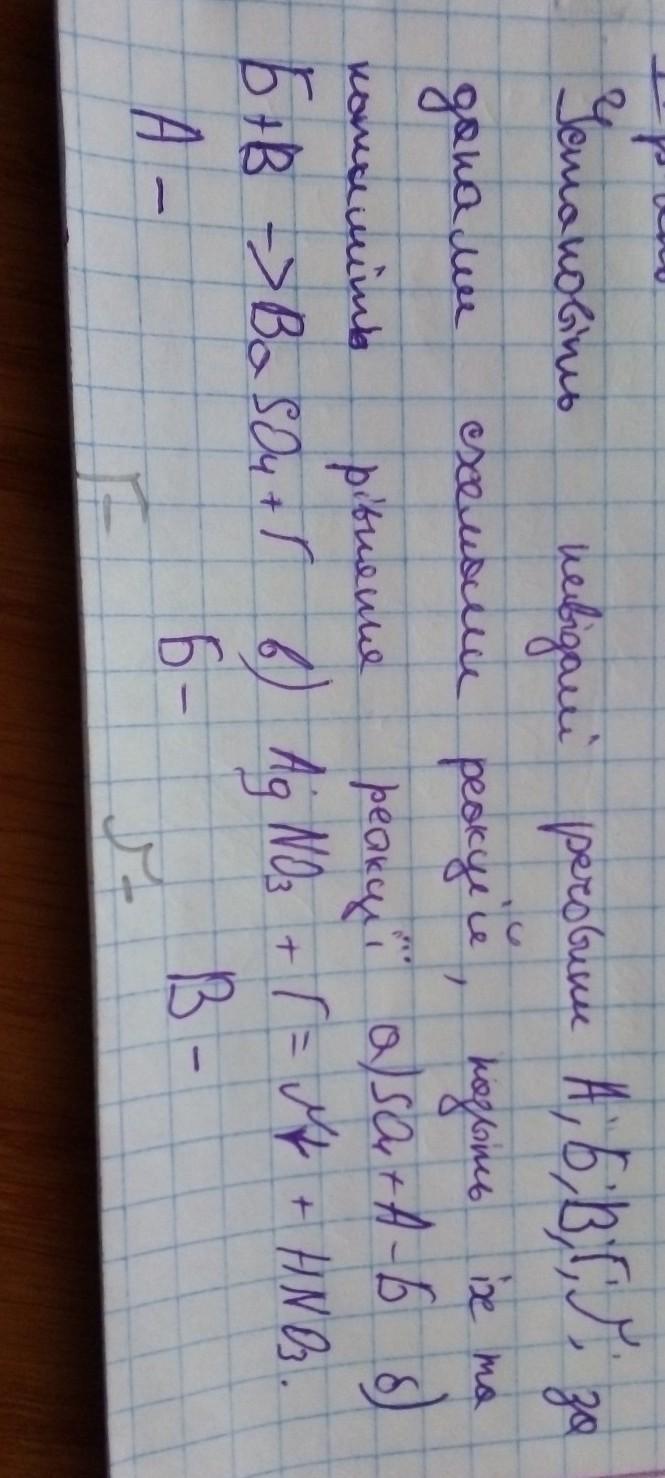 Установіть невідомі речовини А, Б, В, Г, Д, за
даними схемами реакцій, назвіть їх та
напишіть рівняння реакції а) SO4 + А - Б б)
Б + В -> BaSO4 + Г в) AgNO3 + Г = Д↓ + HNO3.
А - Б - В -
Г - Д -